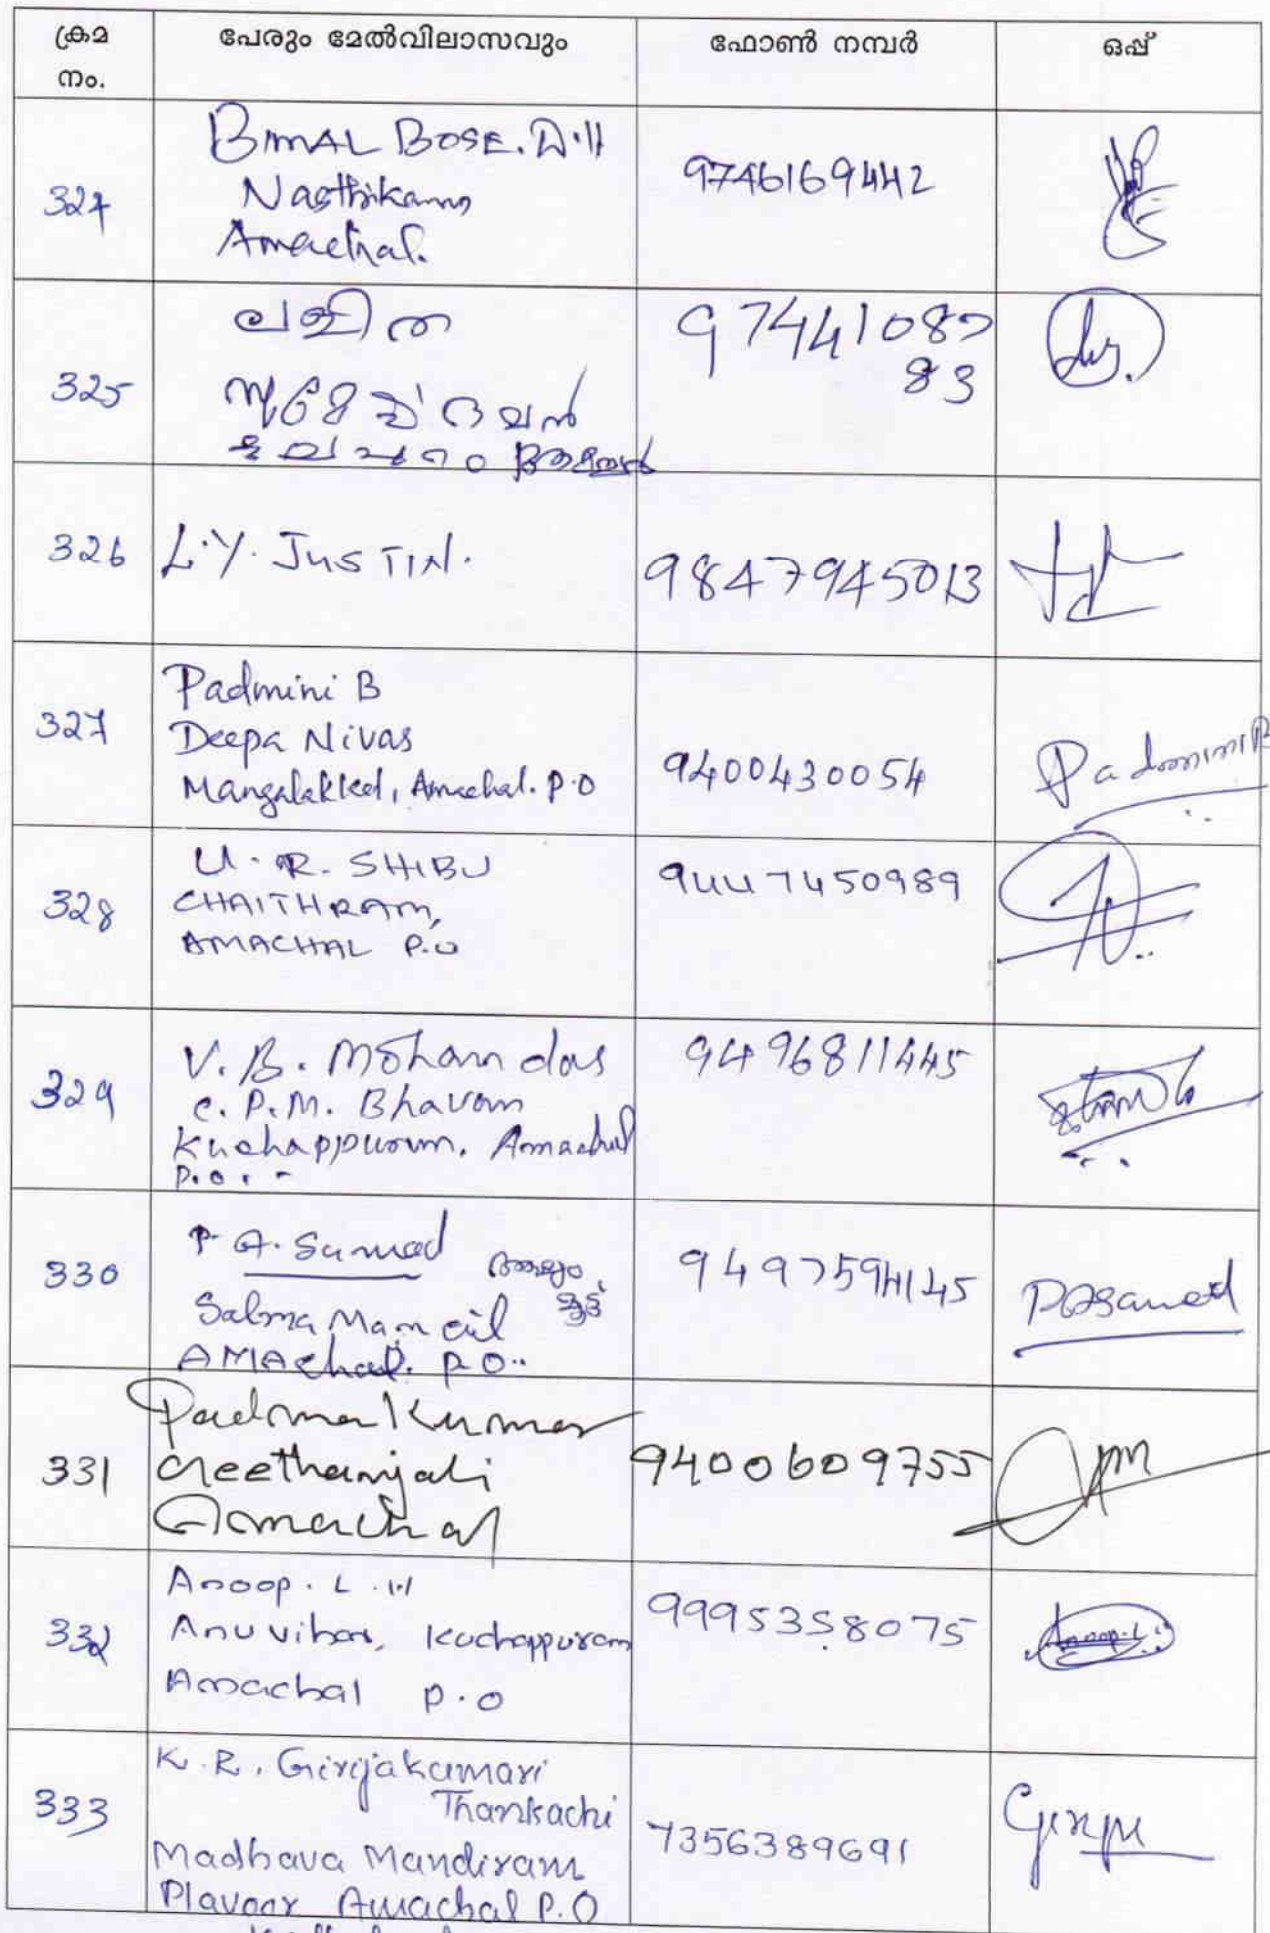 ക്രമ നം. പേരും മേൽവിലാസവും ഫോൺ നമ്പർ ഒപ്പ്
324
BIMAL BOSE. D.H
Nasthikam
Amachal.
9746169442
325
ലളിത
97441087
83
326
L.Y. JUSTIN.
9847945013
327
Padmini B
Deepa Nivas
Mangalakkal, Amachal. P.O
9400430054
Padmini B
328
U. R. SHIBU
CHAITHRAM,
AMACHAL P.O
9447450989
329
V. B. Mohan das
C. P.M. Bhavan
Kuchappuram, Amachal
P.O. -
9496811445
330
P. A. Samad
Salma Manzil
AMAchal. P.O..
9497594145
PASamad
331
Padma Kumar
Geethanjali
Amachal
9400609755
332
Anoop. L.H
Anuvihar, Kuchappuram
Amachal P.O
9995358075
Anoop.L
333
K. R. Girijakumari
Thankachi
Madhava Mandiram
Plavoor Amachal P.O
7356389691
Girija